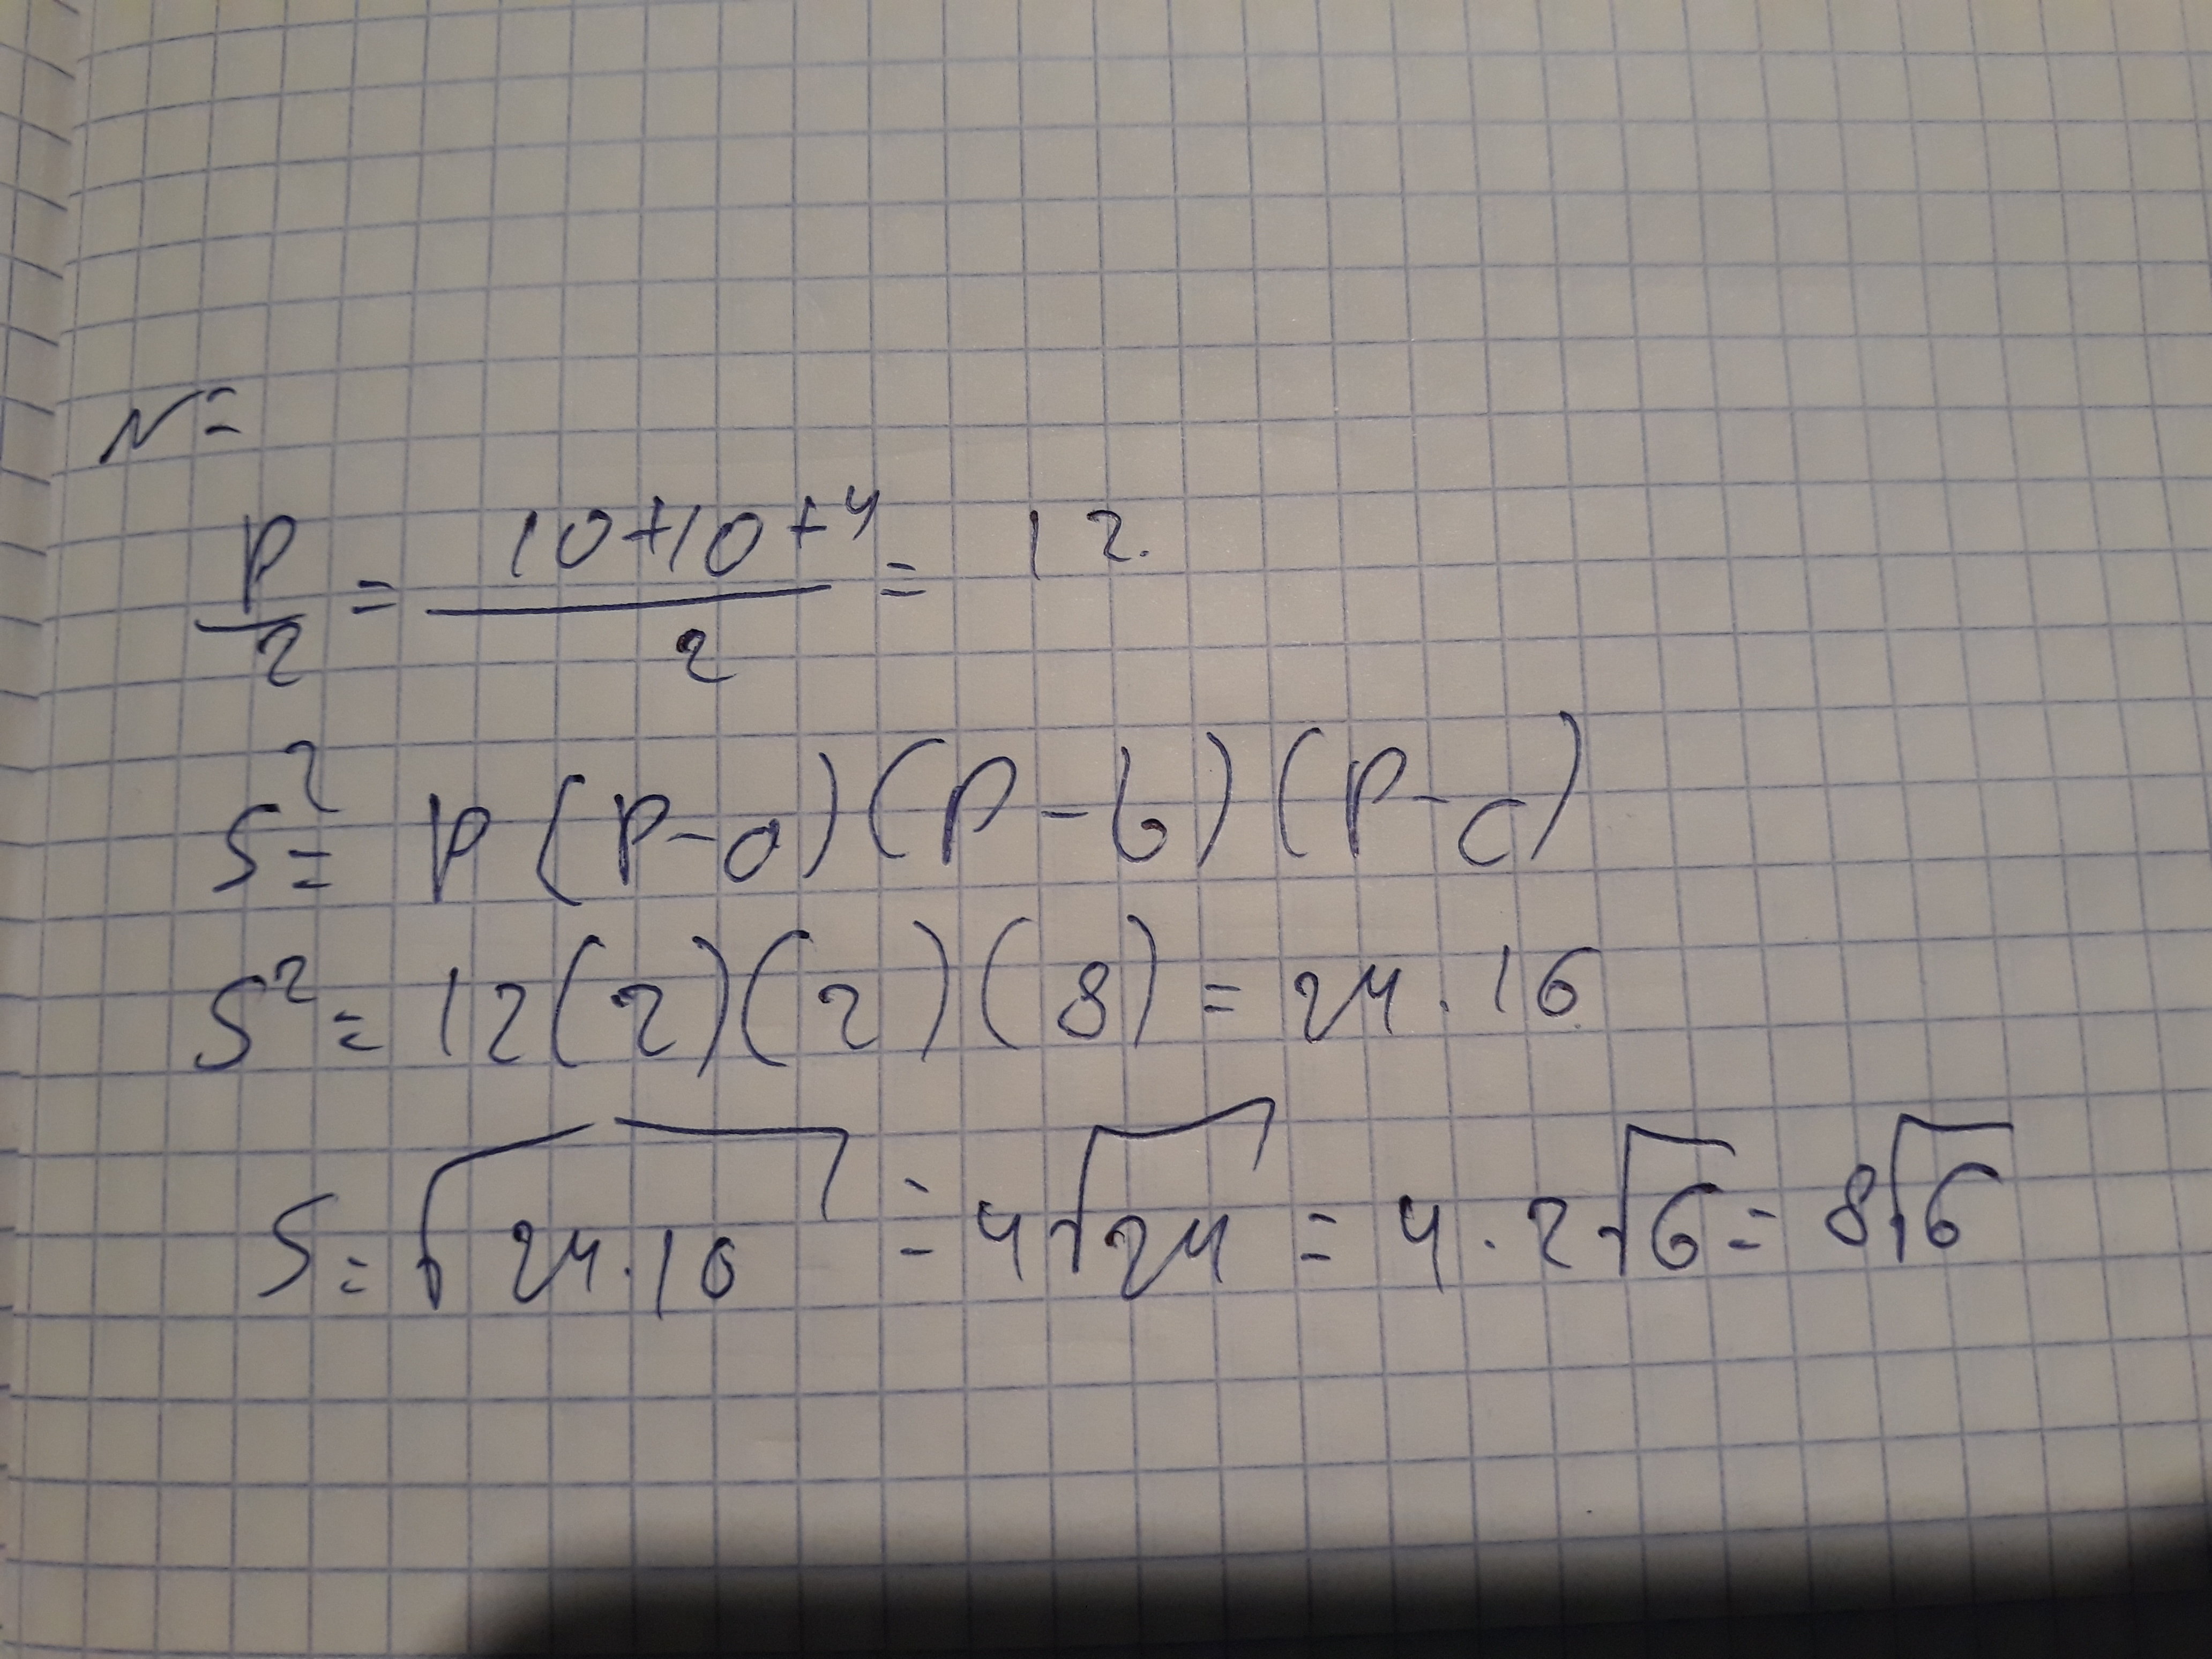 N=
P/2 = (10+10+4)/2 = 12.
S² = P(P-a)(P-b)(P-c)
S² = 12(2)(2)(8) = 24.16
S = √24.16 = 4√24 = 4.2√6 = 8√6